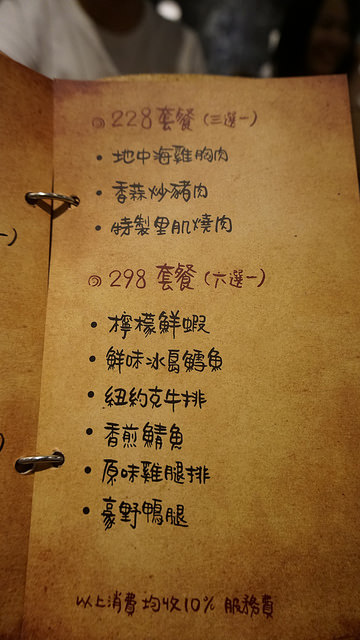 ◎ 228 套餐 (三選一)
• 地中海雞胸肉
• 香蒜炒豬肉
• 特製里肌燒肉
◎ 298 套餐 (六選一)
• 檸檬鮮蝦
• 鮮味冰島鱈魚
• 紐約克牛排
• 香煎鯖魚
• 原味雞腿排
• 豪野鴨腿
以上消費均收10% 服務費